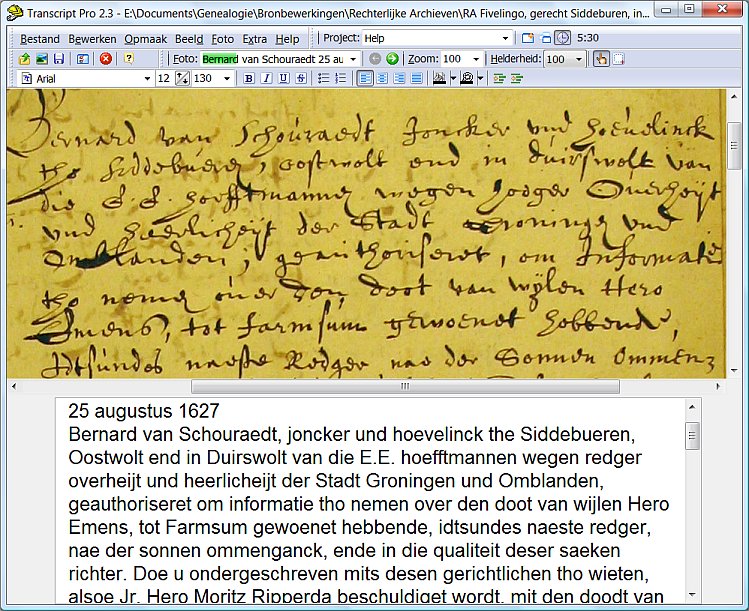 Transcript Pro 2.3 – E:\Documents\Genealogie\Bronbewerkingen\Rechterlijke Archieven\RA Fivelingo, gerecht Siddeburen, in...
Bestand Bewerken Opmaak Beeld Foto Extra Help Project: Help 5:30
Foto: Bernard van Schouraedt 25 au Zoom: 100 Helderheid: 100
Arial 12 130 B I U S
Bernard van Schouraedt Joncker und hoevelinck
tho Siddebueren, Oostwolt end in Duirswolt van
die E.E. hoofftmannen wegen hoeger Overheijt
und heerlicheijt der Stadt Groningen und
Omblanden, geauthoriseret, om Informatie
tho nemen over den doot van wijlen Hero
Emens, tot farmsum gewoenet hebbende,
Idtsundes naeste Redger nae der Sonnen Ommen
25 augustus 1627
Bernard van Schouraedt, joncker und hoevelinck the Siddebueren,
Oostwolt end in Duirswolt van die E.E. hoefftmannen wegen redger
overheijt und heerlicheijt der Stadt Groningen und Omblanden,
geauthoriseret om informatie tho nemen over den doot van wijlen Hero
Emens, tot Farmsum gewoenet hebbende, idtsundes naeste redger,
nae der sonnen ommenganck, ende in die qualiteit deser saeken
richter. Doe u ondergeschreven mits desen gerichtlichen tho wieten,
alsoe Jr. Hero Moritz Ripperda beschuldiget wordt, mit den doodt van